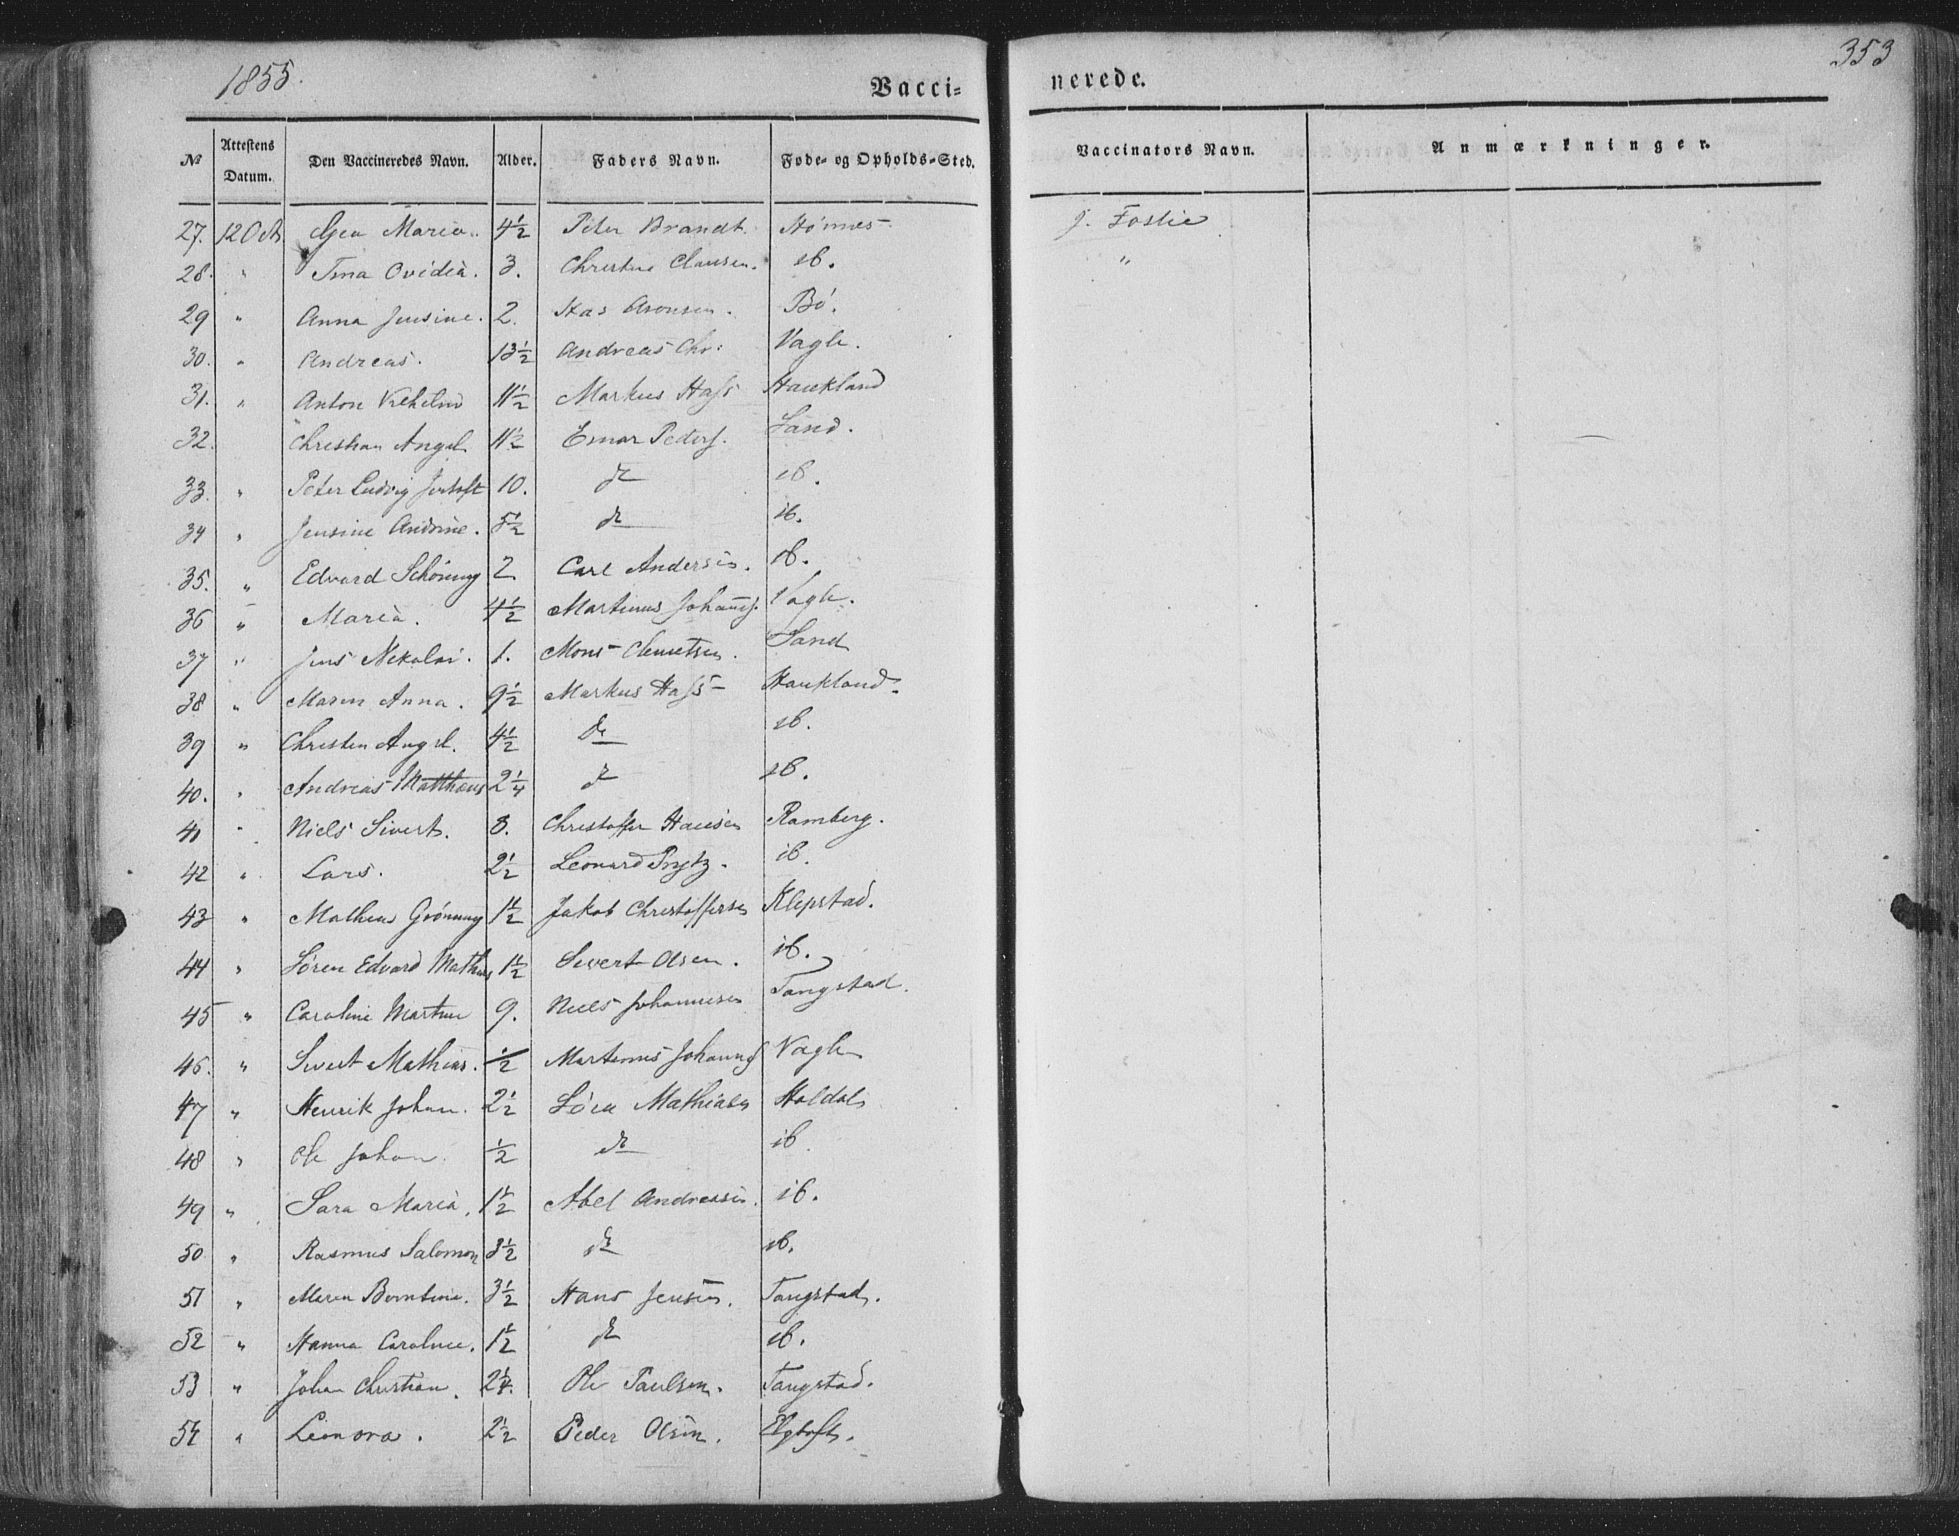 1855.
353
Vacci-nerede.
№ Attestens Datum. Den Vaccineredes Navn. Alder. Faders Navn. Føde- og Opholds-Sted. Vaccinators Navn. Anmærkninger.
27. 12 Oct. Maria. 4½ Peter Brandt. J. Foslie
28. " Tina Ovidia. 3. Clausen. ib. "
29 " Anna Jensine. 2. Aronsen. Bø.
30. " Andreas. 13½ Andreas Chr: Vagle.
31. " Anton Vilhelm 11½ Markus Hass Haukland
32. Christian Angel 11½ Peders. Sand.
33. " Peter Ludvig 10. do ib.
34 " Jensine Andrine. 5½ do ib.
35. " Edvard Schøning 2 Carl Andersen. ib.
36 " Maria. 4½ Martinus Johans. Vagle.
37 " Jens Nikolai. 1. Mons Clemetsen. Sand
38 " Maren Anna. 9½ Markus Hass Haukland.
39 " Christen Angel. 4½ do ib.
40. " Andreas Matthæus 2¼ do ib.
41 " Niels Sivert. 8. Christoffer Hansen Ramberg.
42 " Lars. 2½ Leonard Prytz. ib.
43 " Mathias Grønning 1½ Jakob Christoffersen Klepstad.
44 " Søren Edvard Mathias 1½ Sivert Olsen. ib.
45 " Caroline Martine 9. Niels Johannesen Tangstad.
46. " Sivert Mathias. ½ Martinus Johans Vagle
47 " Henrik Johan. 2½ Søren Mathiasen Holdal
48 " Ole Johan. ½ do ib
49 " Sara Maria. 1½ Abel Andreasen. ib.
50 " Rasmus Salomon 3½ do ib.
51 " Maren Berntine. 3½ Hans Jensen. Tangstad.
52 " Hanna Caroline. 1½ do ib.
53 " Johan Christian. 2¼. Ole Paulsen. Tangstad.
54 " Leonora. 2½ Peder Olsen. Elgtoft.